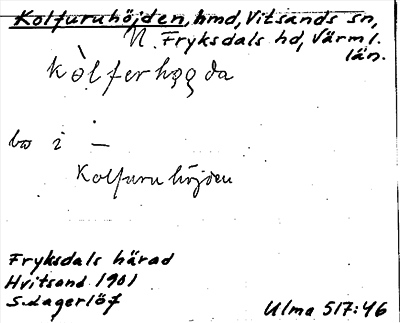 Kolfuruhöjden, hmd, Vitsands sn,
N. Fryksdals hd, Värml.
län.
kòlferhǫgda
bo i —
Kolfuruhöjden
Fryksdals härad
Hvitsand 1901
S. Lagerlöf
Ulma 517:46